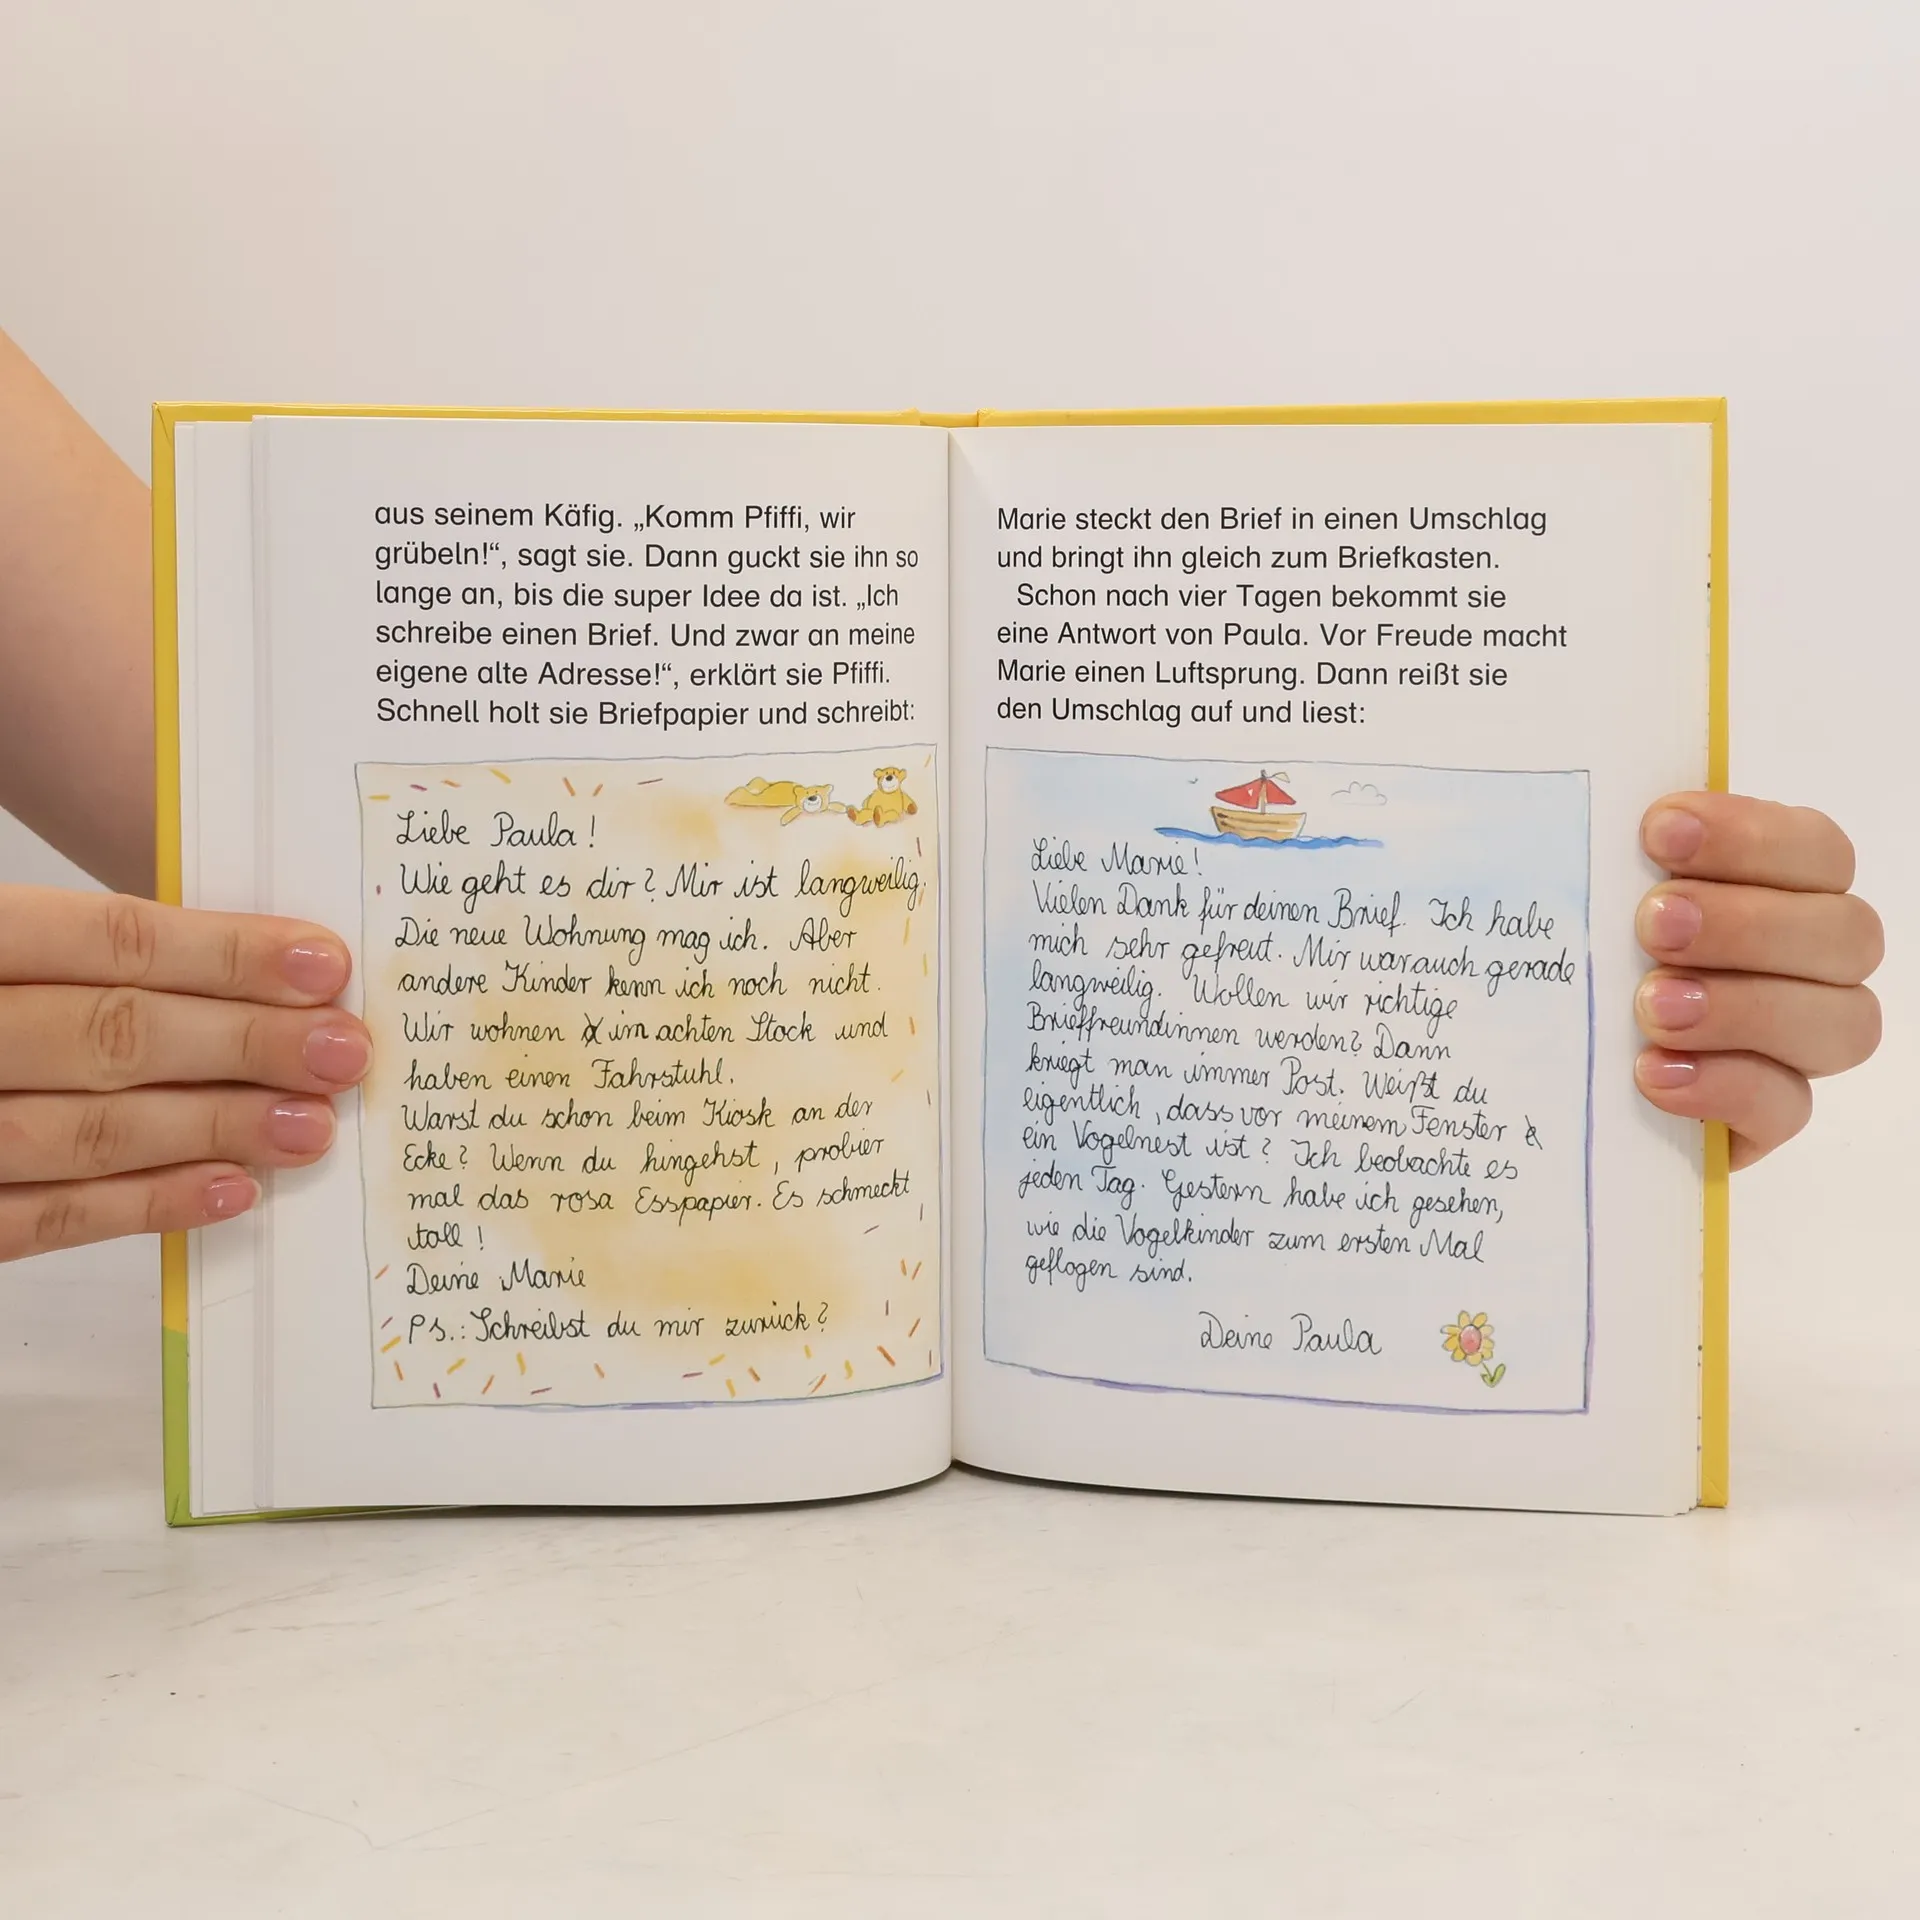 aus seinem Käfig. „Komm Pfiffi, wir
grübeln!“, sagt sie. Dann guckt sie ihn so
lange an, bis die super Idee da ist. „Ich
schreibe einen Brief. Und zwar an meine
eigene alte Adresse!“, erklärt sie Pfiffi.
Schnell holt sie Briefpapier und schreibt:
Liebe Paula!
Wie geht es dir? Mir ist langweilig.
Die neue Wohnung mag ich. Aber
andere Kinder kenn ich noch nicht.
Wir wohnen im achten Stock und
haben einen Fahrstuhl.
Warst du schon beim Kiosk an der
Ecke? Wenn du hingehst, probier
mal das rosa Esspapier. Es schmeckt
toll!
Deine Marie
PS.: Schreibst du mir zurück?
Marie steckt den Brief in einen Umschlag
und bringt ihn gleich zum Briefkasten.
Schon nach vier Tagen bekommt sie
eine Antwort von Paula. Vor Freude macht
Marie einen Luftsprung. Dann reißt sie
den Umschlag auf und liest:
Liebe Marie!
Vielen Dank für deinen Brief. Ich habe
mich sehr gefreut. Mir war auch gerade
langweilig. Wollen wir richtige
Brieffreundinnen werden? Dann
kriegt man immer Post. Weißt du
eigentlich, dass vor meinem Fenster
ein Vogelnest ist? Ich beobachte es
jeden Tag. Gestern habe ich gesehen,
wie die Vogelkinder zum ersten Mal
geflogen sind.
Deine Paula